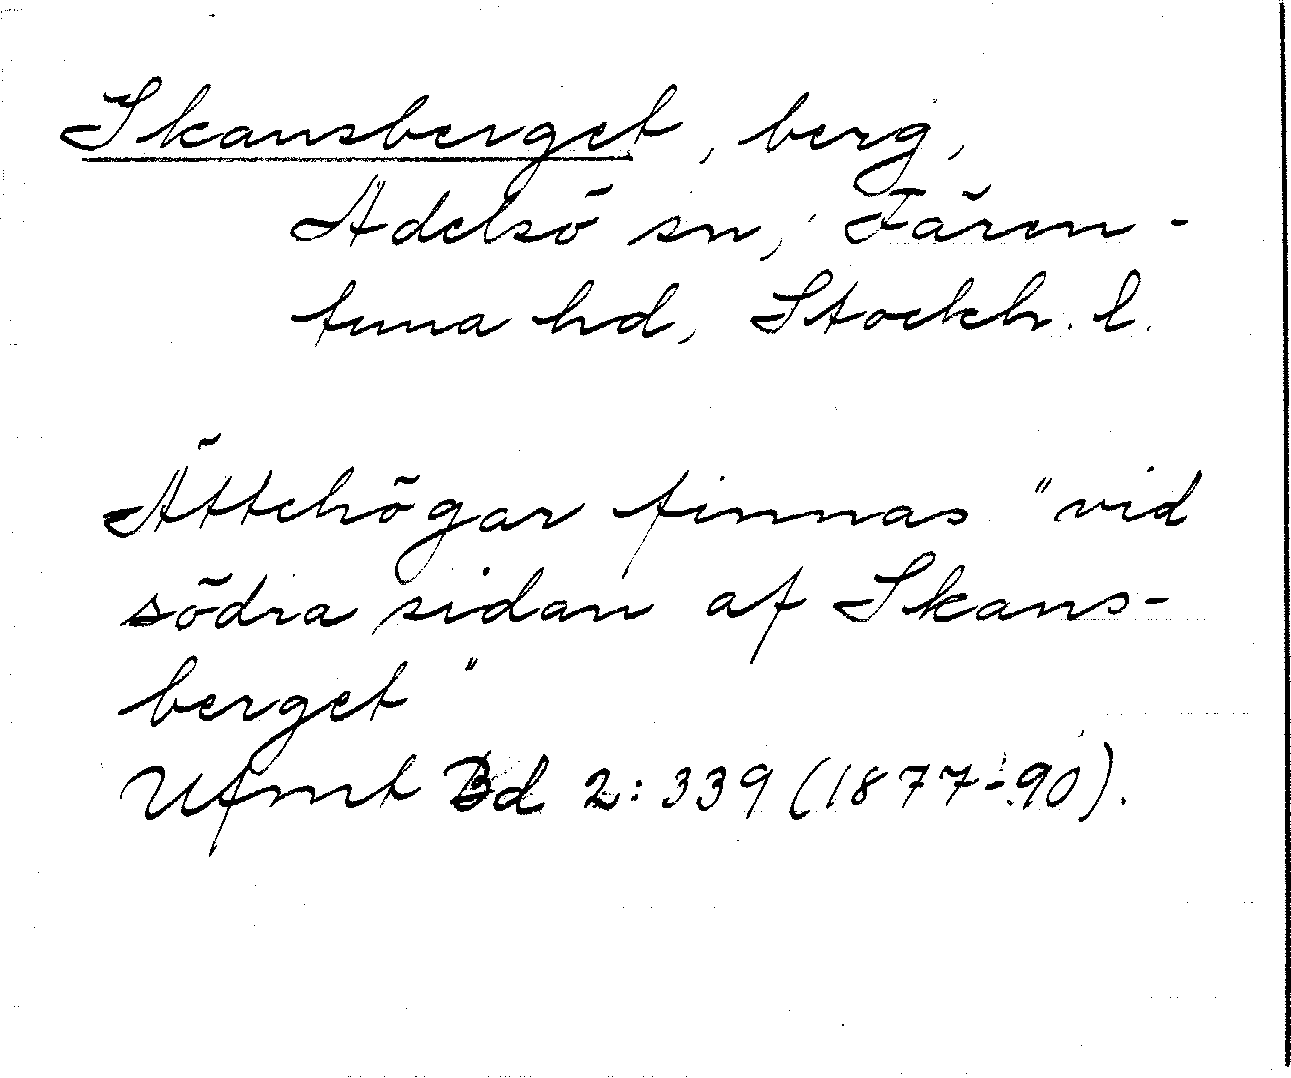 Skansberget, berg,
Adelsö sn, Fären-
tuna hd, Stockh. l.
Ättehögar finnas "vid
södra sidan af Skans-
berget"
Ufmt Bd 2:339 (1877-90).